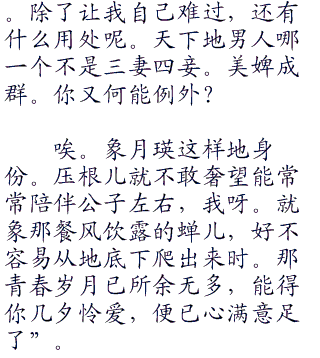 。除了让我自己难过，还有
什么用处呢。天下地男人哪
一个不是三妻四妾。美婢成
群。你又何能例外？
唉。象月瑛这样地身
份。压根儿就不敢奢望能常
常陪伴公子左右，我呀。就
象那餐风饮露的蝉儿，好不
容易从地底下爬出来时。那
青春岁月已所余无多，能得
你几夕怜爱，便已心满意足
了”。